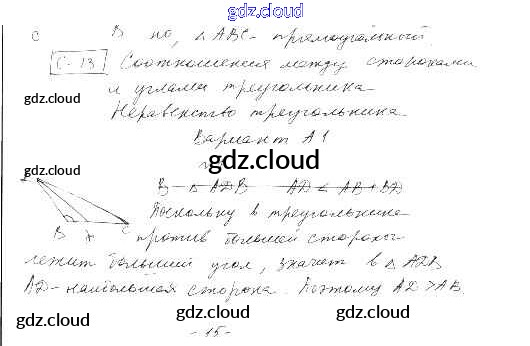 gdz.cloud
C В но, △ABC - прямоугольный.
С-13 Соотношения между сторонами
и углами треугольника.
gdz.cloud
Неравенство треугольника
Вариант А1
gdz.cloud
gdz.cloud
В △ ADB AD < AB + BD
Поскольку в треугольнике
B A C против большей стороны
лежит больший угол, значит в △ ADB
AD - наибольшая сторона. Поэтому AD > AB.
gdz.cloud gdz.cloud gdz.cloud
- 15 -
gdz.cloud